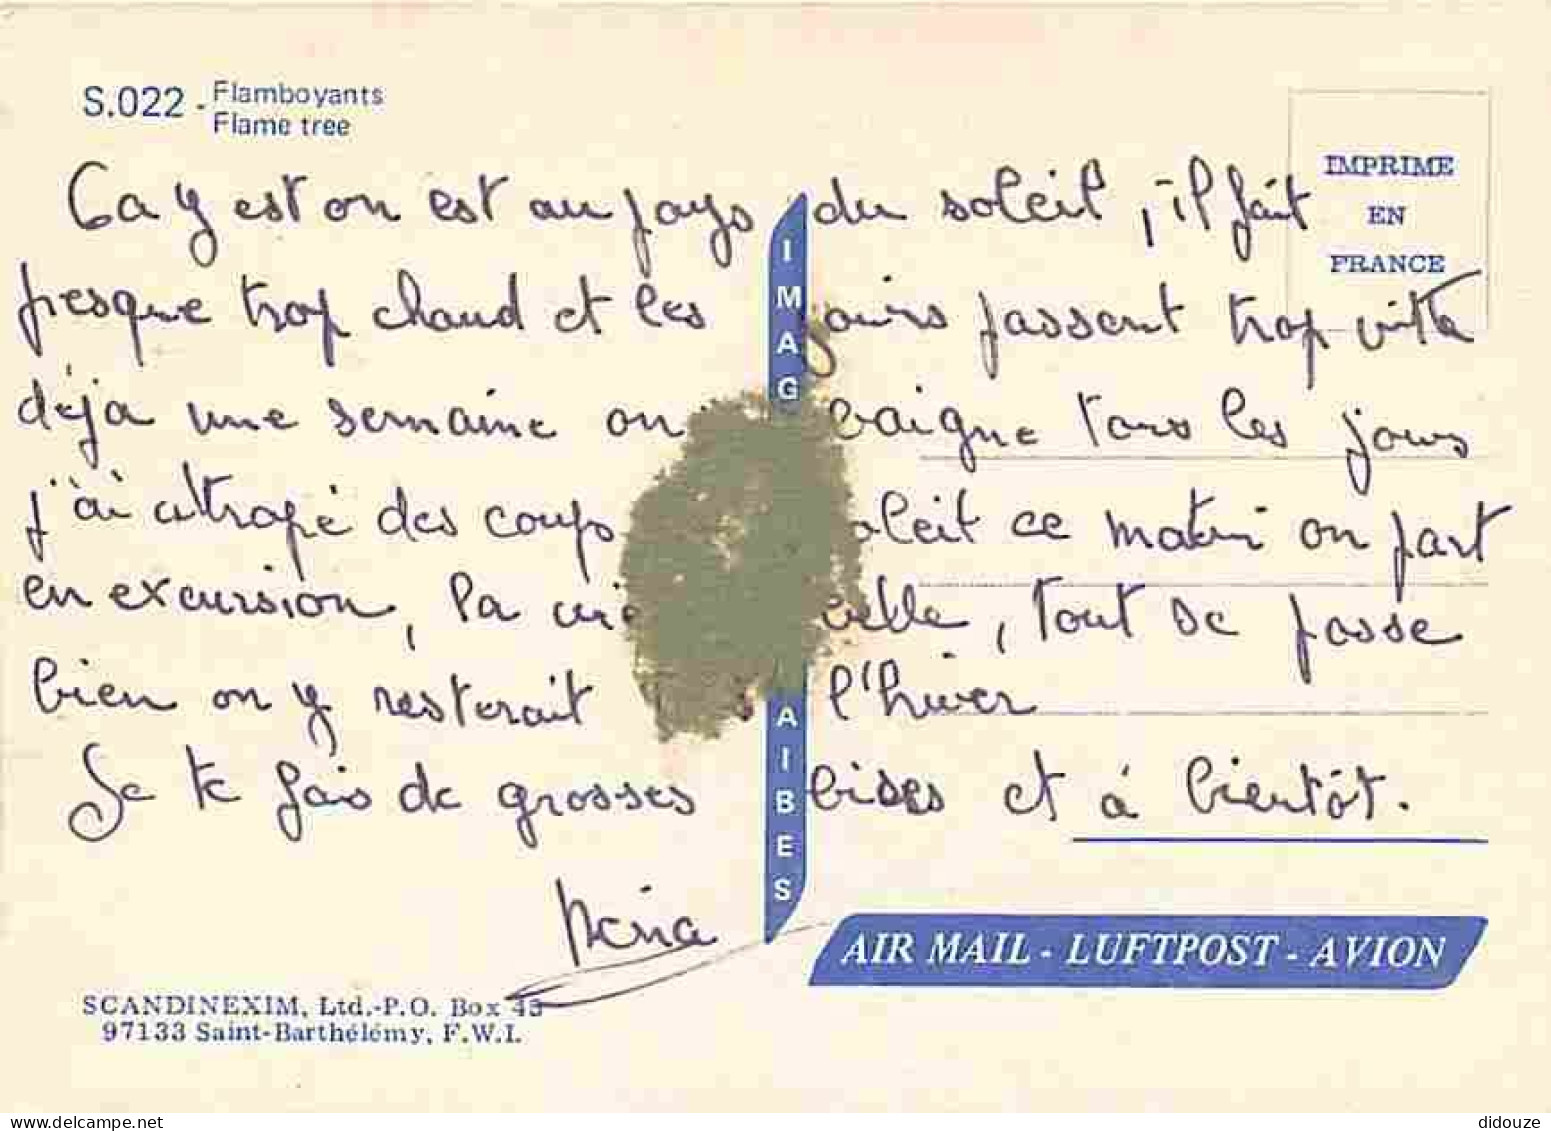 S.022 - Flamboyants
Flame tree
IMPRIME
EN
FRANCE
Ca y est on est au pays du soleil, il fait
presque trop chaud et les jours passent trop vitte
déja une semaine on baigne tous les jours
j'ai attrapé des coups soleil ce matin on part
en excursion, la mer belle, tout se passe
bien on y resterait l'hiver
Je te fais de grosses bises et à bientôt.
IMAG AIBES
AIR MAIL - LUFTPOST - AVION
SCANDINEXIM, Ltd.-P.O. Box 45
97133 Saint-Barthélémy, F.W.I.
didouze